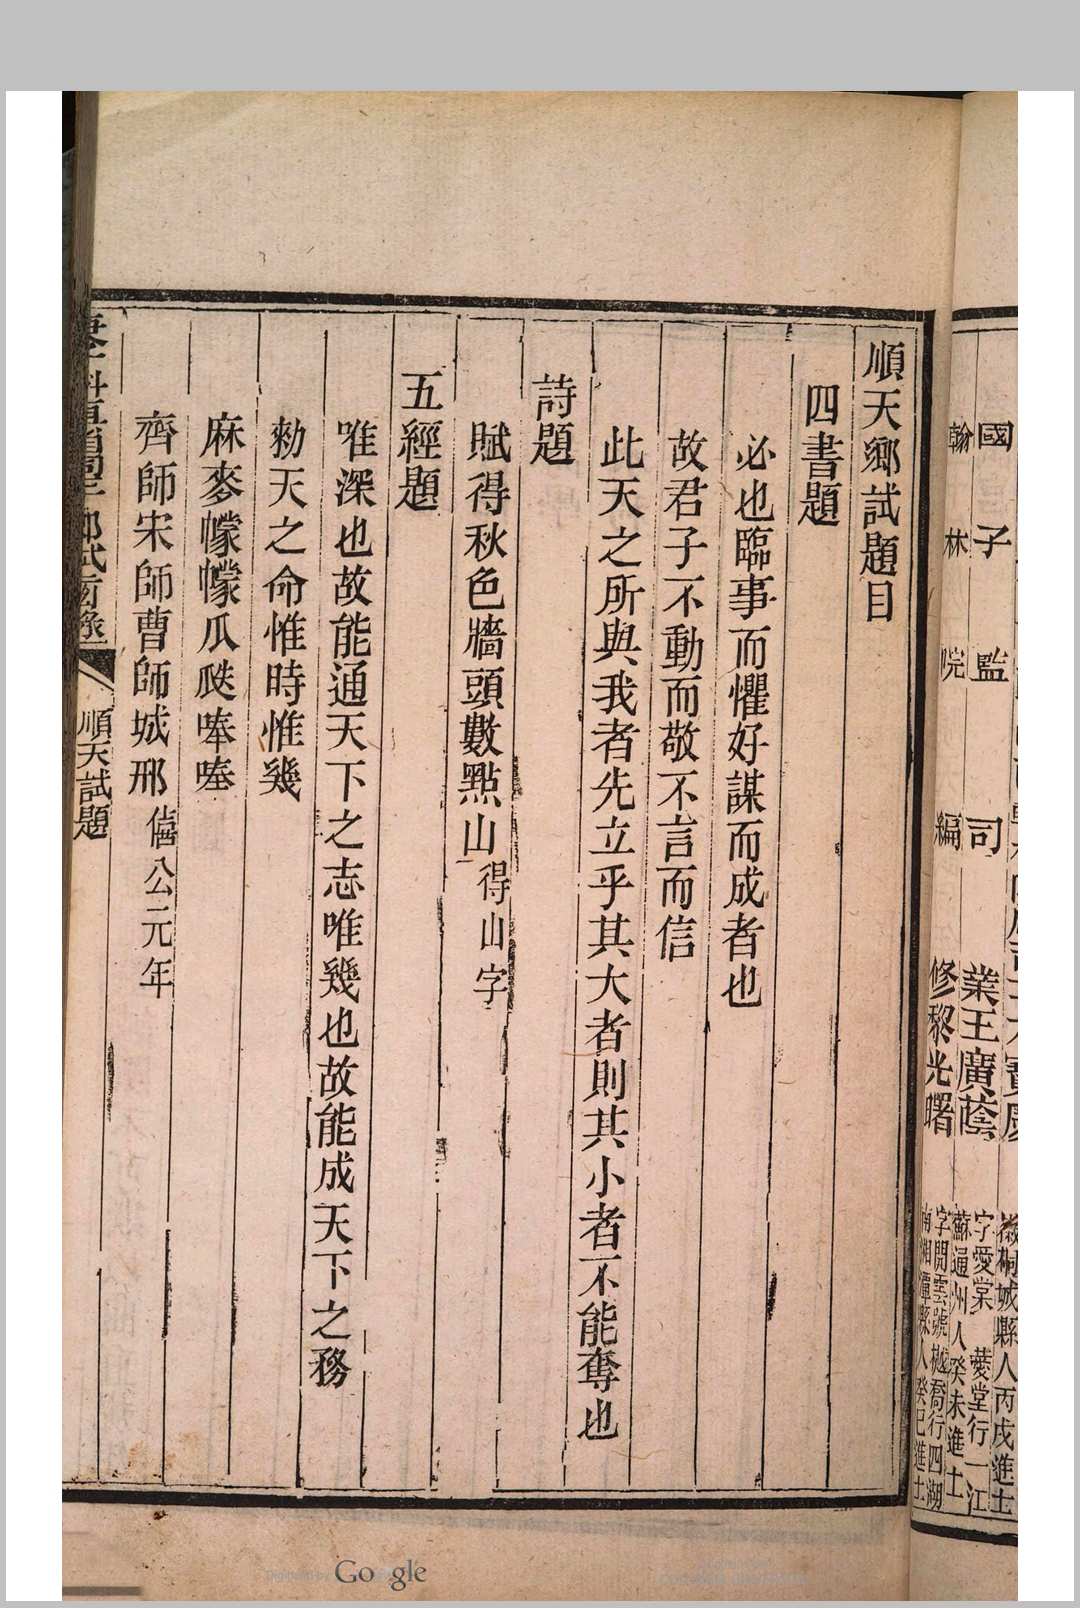 國子監司業王廣蔭
字愛棠 薆堂行一江
蘇通州人癸未進士
翰林院編修黎光曙
字開雲號樾喬行四湖
南湘潭縣人癸巳進士
順天鄉試題目
四書題
必也臨事而懼好謀而成者也
故君子不動而敬不言而信
此天之所與我者先立乎其大者則其小者不能奪也
詩題
賦得秋色牆頭數點山得山字
五經題
唯深也故能通天下之志唯幾也故能成天下之務
勑天之命惟時惟幾
麻麥幪幪瓜瓞唪唪
齊師宋師曹師城邢僖公元年
順天試題
Digitized by Google